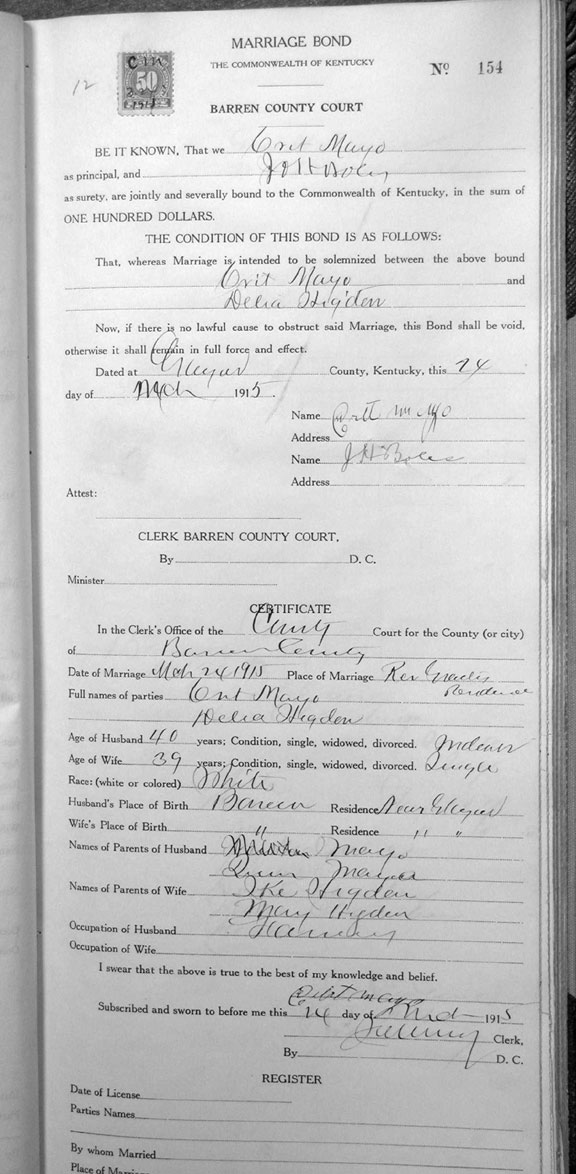 MARRIAGE BOND
THE COMMONWEALTH OF KENTUCKY
No 154
12
50
BARREN COUNTY COURT
BE IT KNOWN, That we Orit Mayo
as principal, and J H Boles
as surety, are jointly and severally bound to the Commonwealth of Kentucky, in the sum of
ONE HUNDRED DOLLARS.
THE CONDITION OF THIS BOND IS AS FOLLOWS:
That, whereas Marriage is intended to be solemnized between the above bound
Orit Mayo and
Delia Higdon
Now, if there is no lawful cause to obstruct said Marriage, this Bond shall be void,
otherwise it shall remain in full force and effect.
Dated at County, Kentucky, this 24
day of Mch 1915.
Name
Address
Name J H Boles
Address
Attest:
CLERK BARREN COUNTY COURT.
By D. C.
Minister
CERTIFICATE
In the Clerk's Office of the County Court for the County (or city)
of Barren County
Date of Marriage Mch 24 1915 Place of Marriage Rev
Residence
Full names of parties Orit Mayo
Delia Higdon
Age of Husband 40 years; Condition, single, widowed, divorced.
Age of Wife 39 years; Condition, single, widowed, divorced. Single
Race: (white or colored) White
Husband's Place of Birth Barren Residence Near
Wife's Place of Birth " Residence " "
Names of Parents of Husband Mayo
Names of Parents of Wife Ike Higdon
Mary Higdon
Occupation of Husband
Occupation of Wife
I swear that the above is true to the best of my knowledge and belief.
Mayo
Subscribed and sworn to before me this 24 day of Mch 1915
Clerk,
By D. C.
REGISTER
Date of License
Parties Names
By whom Married
Place of Marriage